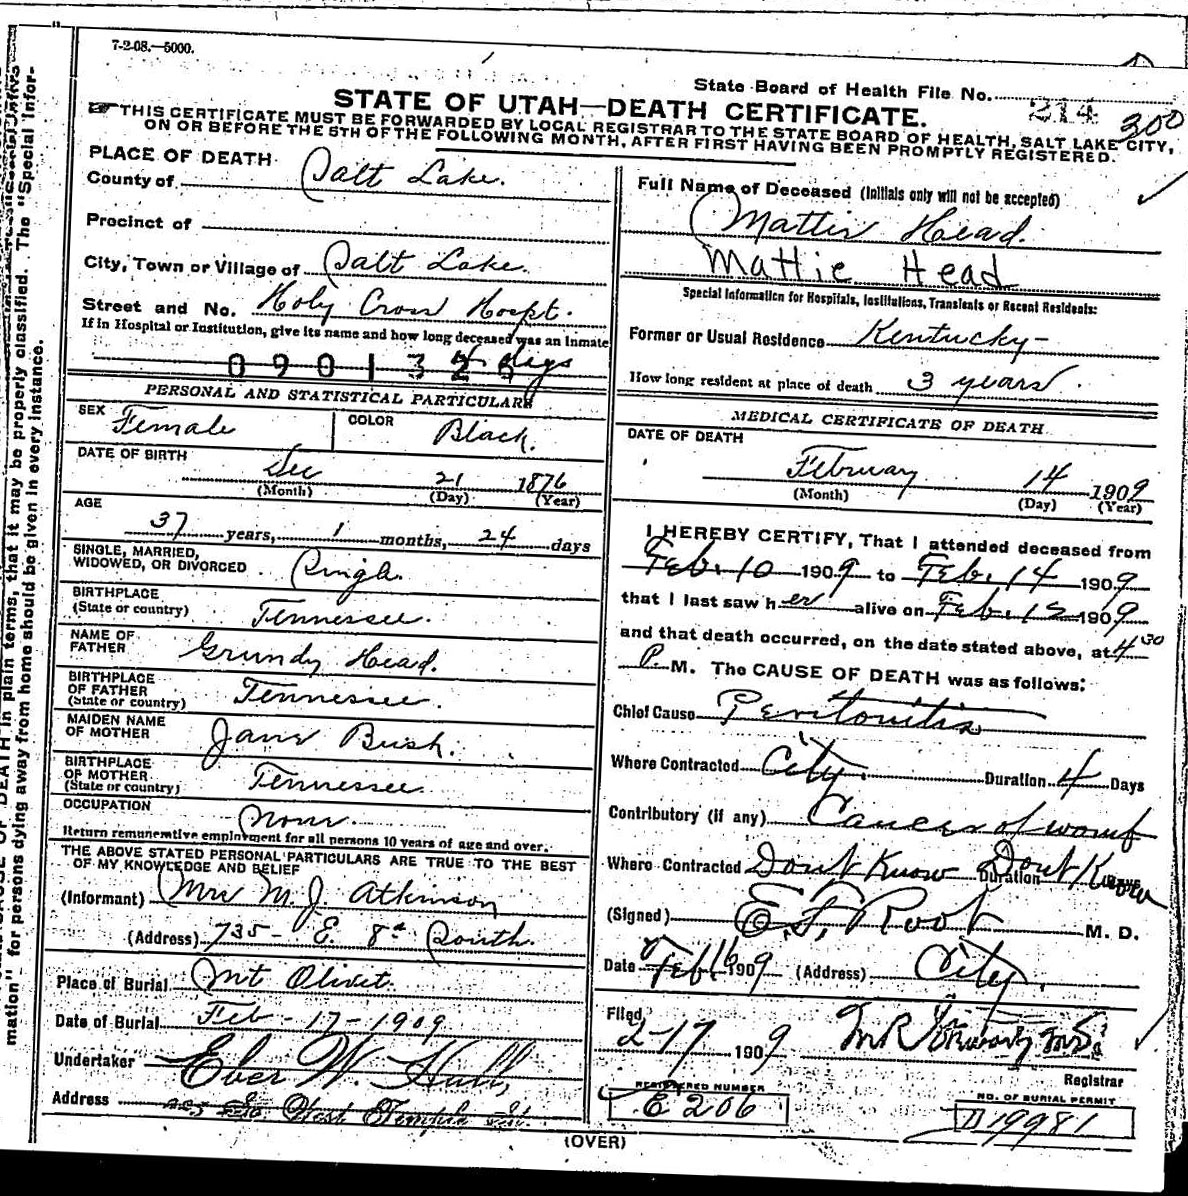 7-2-08.—5000.
State Board of Health File No. 214
300
STATE OF UTAH—DEATH CERTIFICATE.
THIS CERTIFICATE MUST BE FORWARDED BY LOCAL REGISTRAR TO THE STATE BOARD OF HEALTH, SALT LAKE CITY,
ON OR BEFORE THE 5TH OF THE FOLLOWING MONTH, AFTER FIRST HAVING BEEN PROMPTLY REGISTERED.
PLACE OF DEATH
County of Salt Lake.
Precinct of
City, Town or Village of Salt Lake.
Street and No. Holy Cross Hospt.
If in Hospital or Institution, give its name and how long deceased was an inmate
4 days
0901325
PERSONAL AND STATISTICAL PARTICULARS
SEX Female COLOR Black.
DATE OF BIRTH Dec 21 1876
(Month) (Day) (Year)
AGE
37 years, 1 months, 24 days
SINGLE, MARRIED,
WIDOWED, OR DIVORCED Single.
BIRTHPLACE
(State or country) Tennessee.
NAME OF
FATHER Grundy Head.
BIRTHPLACE
OF FATHER
(State or country) Tennessee.
MAIDEN NAME
OF MOTHER Jane Bush.
BIRTHPLACE
OF MOTHER
(State or country) Tennessee.
OCCUPATION
None.
Return remunerative employment for all persons 10 years of age and over.
THE ABOVE STATED PERSONAL PARTICULARS ARE TRUE TO THE BEST
OF MY KNOWLEDGE AND BELIEF
(Informant) Mrs M. J. Atkinson
(Address) 735- E. 8th South.
Place of Burial Mt Olivet.
Date of Burial Feb - 17 - 1909
Undertaker Eber W. Hall,
Address West Temple St.
Full Name of Deceased (Initials only will not be accepted)
Mattie Head.
Mattie Head
Special Information for Hospitals, Institutions, Transients or Recent Residents:
Former or Usual Residence Kentucky-
How long resident at place of death 3 years.
MEDICAL CERTIFICATE OF DEATH
DATE OF DEATH
February 14 1909
(Month) (Day) (Year)
I HEREBY CERTIFY, That I attended deceased from
Feb. 10 1909 to Feb. 14 1909
that I last saw her alive on Feb. 1909
and that death occurred, on the date stated above, at 4 30
P. M. The CAUSE OF DEATH was as follows:
Chief Cause Peritonitis
Where Contracted City. Duration 4 Days
Contributory (if any) Cancer of womb
Where Contracted Dont Know Duration Dont Know
(Signed) E. F. Root M. D.
Date Feb 16 1909 (Address) City.
Filed,
2-17 1909
Registrar
REGISTERED NUMBER
E 206
NO. OF BURIAL PERMIT
D 19981
(OVER)
DEATH in plain terms, that it may be properly classified. The "Special Infor-
mation" for persons dying away from home should be given in every instance.